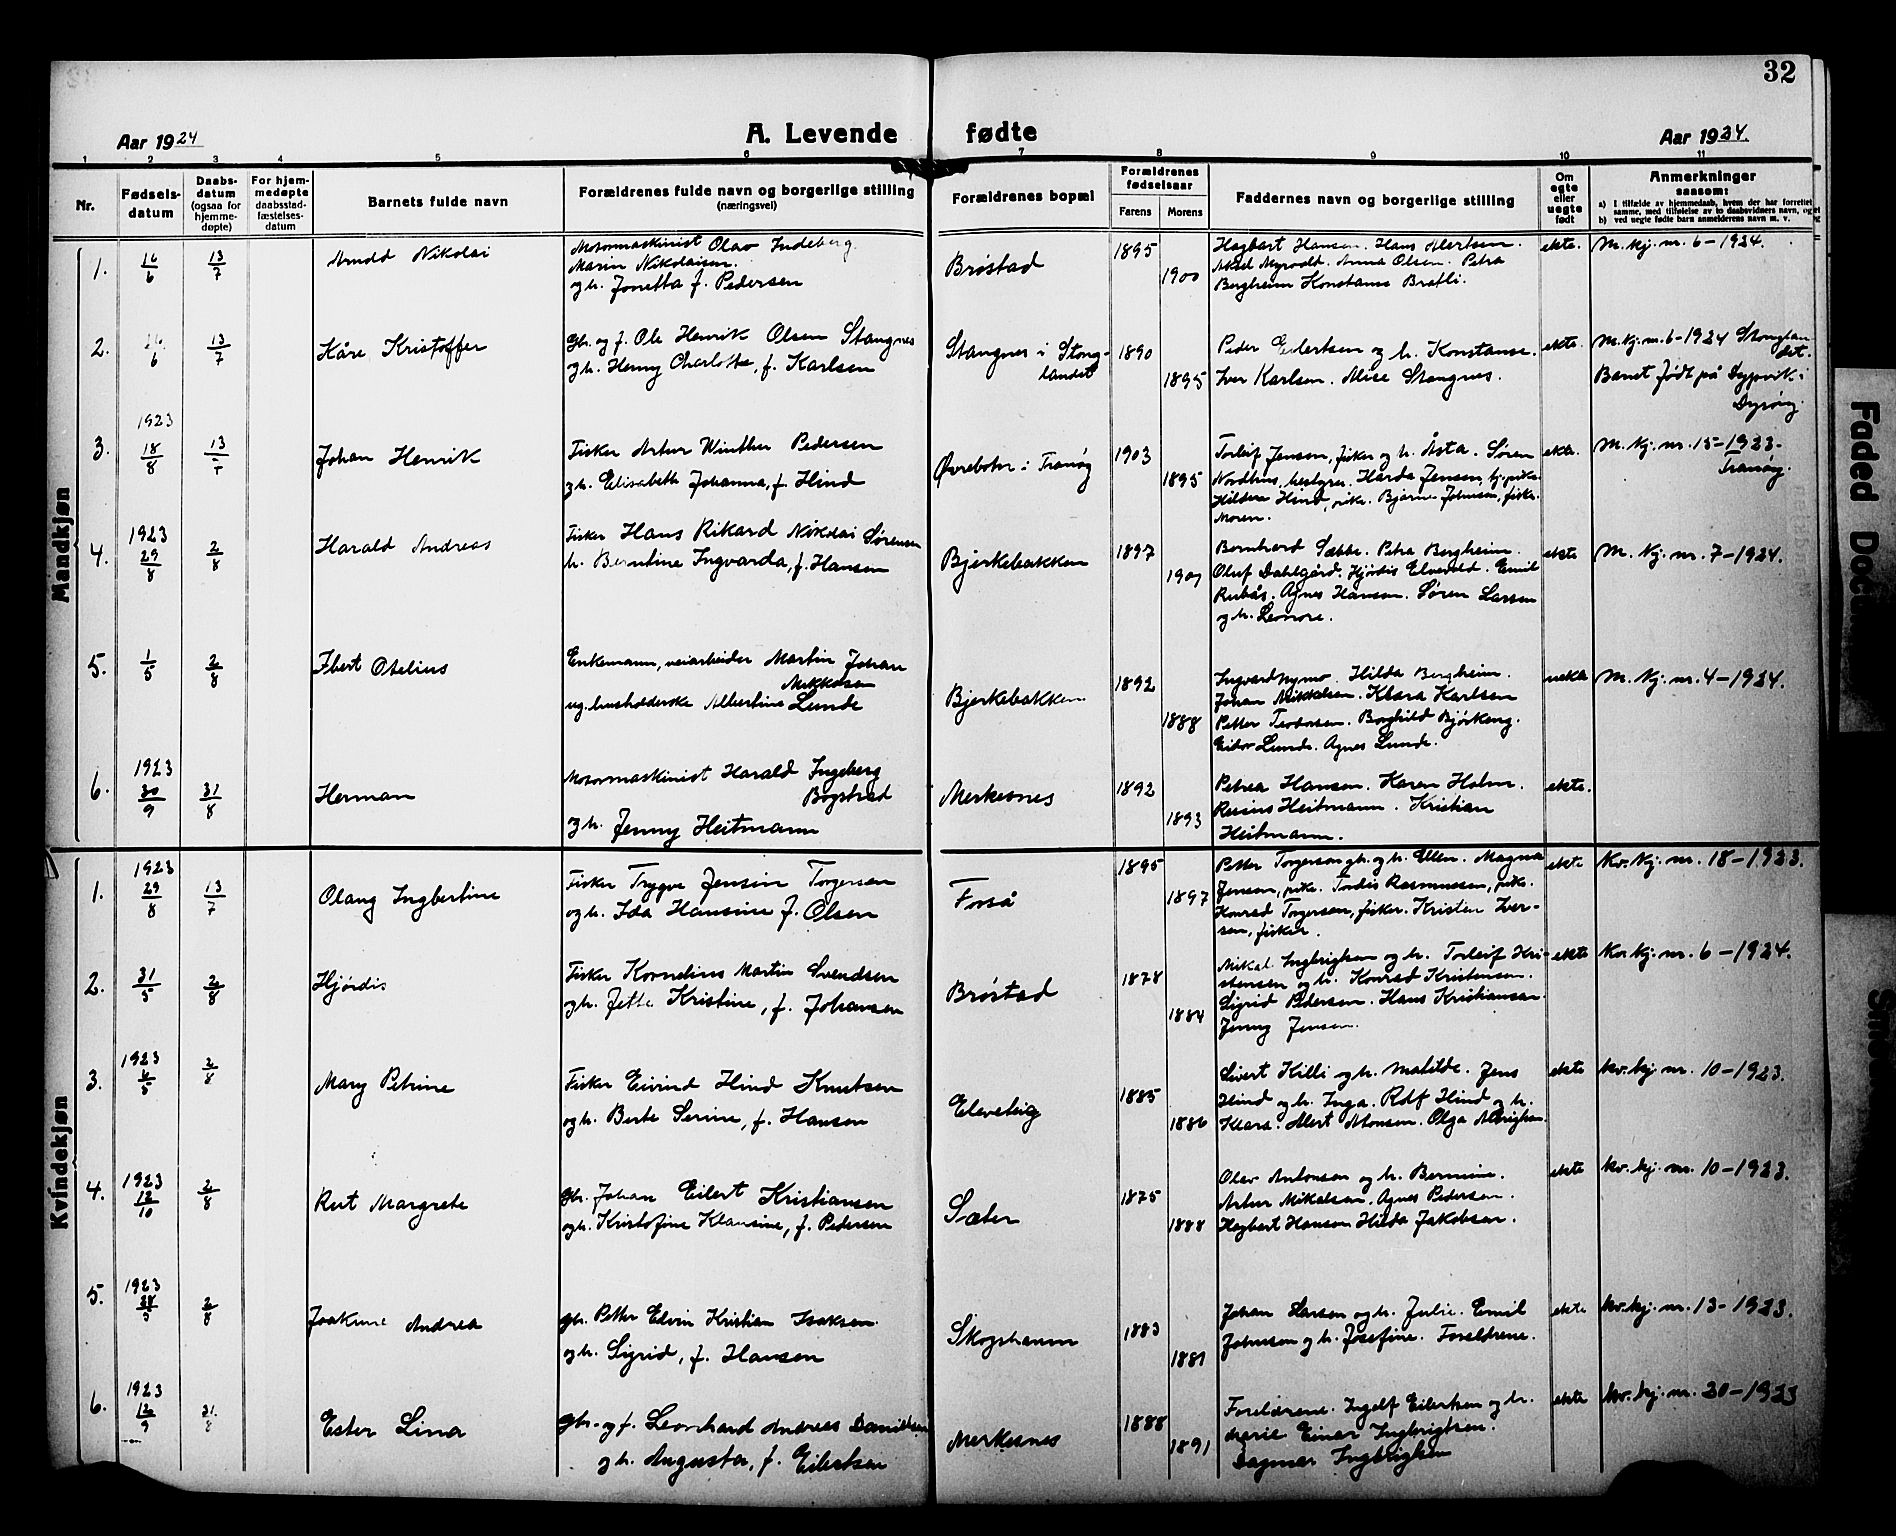 32
Aar 1924
A. Levende fødte
Aar 1924.
1 2 3 4 5 6 7 8 9 10 11
Nr.
Fødsels-
datum
Daabs-
datum
(ogsaa for
hjemme-
døpte)
For hjem-
medøpte
daabsstad-
fæstelses-
datum
Barnets fulde navn
Forældrenes fulde navn og borgerlige stilling
(næringsvei)
Forældrenes bopæl
Forældrenes
fødselsaar
Farens
Morens
Faddernes navn og borgerlige stilling
Om
egte
eller
uegte
født
Anmerkninger
saasom:
a) I tilfælde av hjemmedaab, hvem der har forrettet
samme, med tilføielse av to daabsvidners navn, og
b) ved uegte fødte barn anmelderens navn m. v.
Mandkjøn
1. 16/6 13/7
Arnold Nikolai
Motormaskinist Olav Indeberg
Marin Nikolaisen.
og h. Jonetta f. Pedersen
Brøstad
1895
1900
Hagbart Hansen. Hans Alertsen.
Aksel Myrvold. Anna Olsen. Petra
Bergheim Konstanse Bratli.
ekte.
M. kj. nr. 6-1924.
2. 6 13/7
Kåre Kristoffer
Gbr. og f. Ole Henrik Olsen Stangnes
og h. Henny Charlotte, f. Karlsen
Stangnes i Stong-
landet
1890
1895
Peder Eilertsen og h. Konstanse.
Iver Karlsen. Alise Stangnes.
ekte.
M. kj. nr. 6-1924 Stonglan
det.
Barnet født på Dypvik i
Dyrøy.
3. 1923 18/8 13/7
Johan Henrik
Fisker Artur Winther Pedersen
og h. Elisabeth Johanna, f. Hind
Øvrebotn i Tranøy
1903
1895
Torleif Jensen, fisker og h. Åsta. Søren
Nordhus, bestyrer. Harda Jensen, tj. pike.
Hildur Hind, pike. Bjarne Johnsen, fisker.
Moren.
ekte.
M. kj. nr. 15-1923-
Tranøy.
4. 1923 29/8 2/8
Harald Andreas
Fisker Hans Rikard Nikolai Sørensen
h. Berntine Ingvarda, f. Hansen
Bjerkebakken
1897
1901
Bernhard Sæbbe. Petra Bergheim.
Oluf Dahlgård. Hjørdis Elvevold. Emil
Rubås. Agnes Hansen. Søren Larsen
og h. Leonore.
ekte
M. kj. nr. 7-1924.
5. 1/5 2/8
Ibert Otelius
Enkemann, veiarbeider Martin Johan
Mikkelsen
ug. husholderske Albertine Lunde
Bjerkebakken
1892
1888
Ingvard Nymo. Hilda Bergheim.
Johan Mikkelsen. Klara Karlsen
Petter Teodorsen. Borghild Bjørkeng.
Eidor Lunde. Agnes Lunde.
uekte
M. kj. nr. 4-1924.
6. 1923 30/9 31/8
Herman
Motormaskinist Harald Ingeberg
Bogstrad
og h. Jenny Heitmann
Merkesnes
1892
1893
Petrea Hansen. Karen Holm.
Rasius Heitmann. Kristian
Heitmann.
ekte.
Kvindekjøn
1. 1923 29/8 13/7
Olaug Ingbertine
Fisker Trygve Jensin Torgersen
og h. Ida Hansine f. Olsen
Forså
1895
1897
Petter Torgersen gbr. og h. Ellen. Magna
Jensen, pike. Tordis Rasmussen, pike.
Konrad Torgersen, fisker. Kristen Iver-
sen, fisker.
ekte
Kv. kj. nr. 18-1923.
2. 31/5 2/8
Hjørdis
Fisker Kornelius Martin Svendsen
og h. Jette Kristine, f. Johansen
Brøstad
1878
1884
Mikal Ingbrigtsen og h. Torleif Kri-
stensen og h. Konrad Kristensen.
Sigrid Pedersen. Hans Kristiansen
Jenny Jensen.
ekte
Kv. kj. nr. 6-1924.
3. 1923 6/5 2/8
Mary Petrine
Fisker Eivind Hind Knutsen
og h. Berte Serine, f. Hansen
Elveteig
1885
1886
Sivert Killi og h. Matilde. Jens
Hind og h. Inga. Rolf Hind og h.
Klara. Alert Monsen. Olga Albrigtsen.
ekte
Kv. kj. nr. 10-1923.
4. 1923 12/10 2/8
Rut Margrete
Gbr. Johan Eilert Kristiansen
og h. Kristofine Klausine, f. Pedersen
Sæter
1875
1888
Olav Antonsen og h. Bermine.
Artur Mikalsen. Agnes Pedersen.
Hagbart Hansen Hilda Jakobsen.
ekte
Kv. kj. nr. 10-1923.
5. 1923 28/5 2/8
Joakime Andrea
Gbr. Petter Edvin Kristian Isaksen
og h. Sigrid, f. Hansen
Skogshamn
1883
1881
Johan Larsen og h. Julie. Emil
Johnsen og h. Josefine. Foreldrene.
ekte
Kv. kj. nr. 13-1923.
6. 1923 12/9 31/8
Ester Lina
Gbr. og f. Leonhard Andreas Danielsen
og h. Augusta, f. Eilertsen
Merkesnes
1888
1891
Foreldrene. Ingolf Eilertsen og h.
Marie Einar Ingbrigtsen.
Dagmar Ingbrigtsen
ekte
Kv. kj. nr. 20-1923
Faded Doc